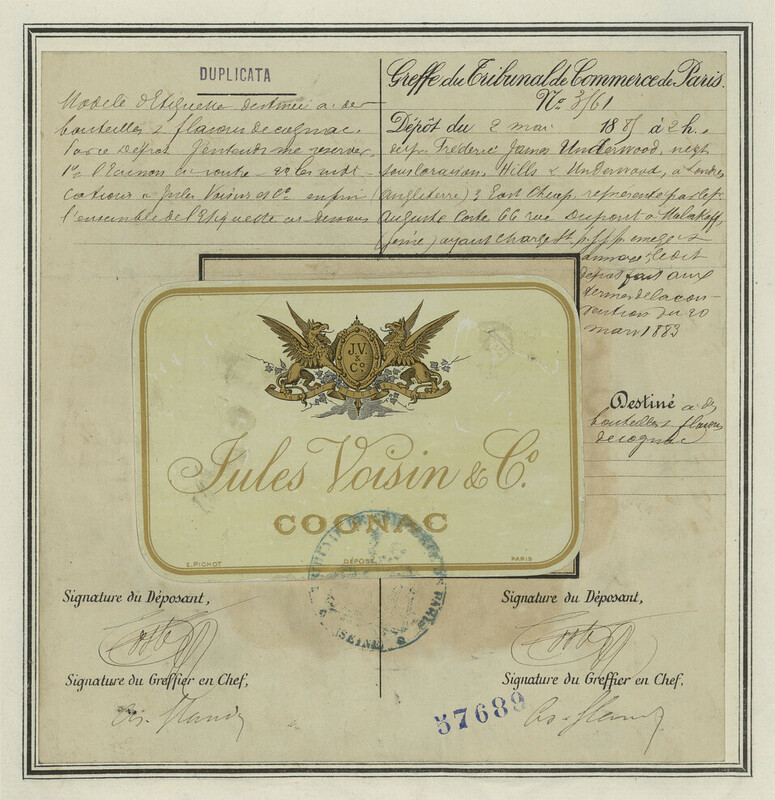 DUPLICATA
Modèle d'Etiquette destinée à des
bouteilles & flacons de cognac.
Par ce Dépôt j'entends me réserver
1º l'Ecusson
Jules Voisin et Cº enfin
l'ensemble de l'Etiquette ci-dessous
Greffe du Tribunal de Commerce de Paris.
Nº 3161
Dépôt du 2 mai 1885 à 2 h.
Frédéric James Underwood, négt
Hills & Underwood, à Londres
(Angleterre) 3 East Cheap, représenté par le sr
Auguste Coste 66 rue Dupont à Malakoff,
(Seine) ayant charge
ledit
dépôt fait aux
termes de la con-
vention du 20
mars 1883
Destiné à des
bouteilles & flacons
de cognac
J.V.
&
Cº
Jules Voisin & Cº
COGNAC
E. PICHOT DÉPOSÉ PARIS
PARIS
(SEINE)
Signature du Déposant,
Signature du Greffier en Chef,
Signature du Déposant,
Signature du Greffier en Chef,
57689